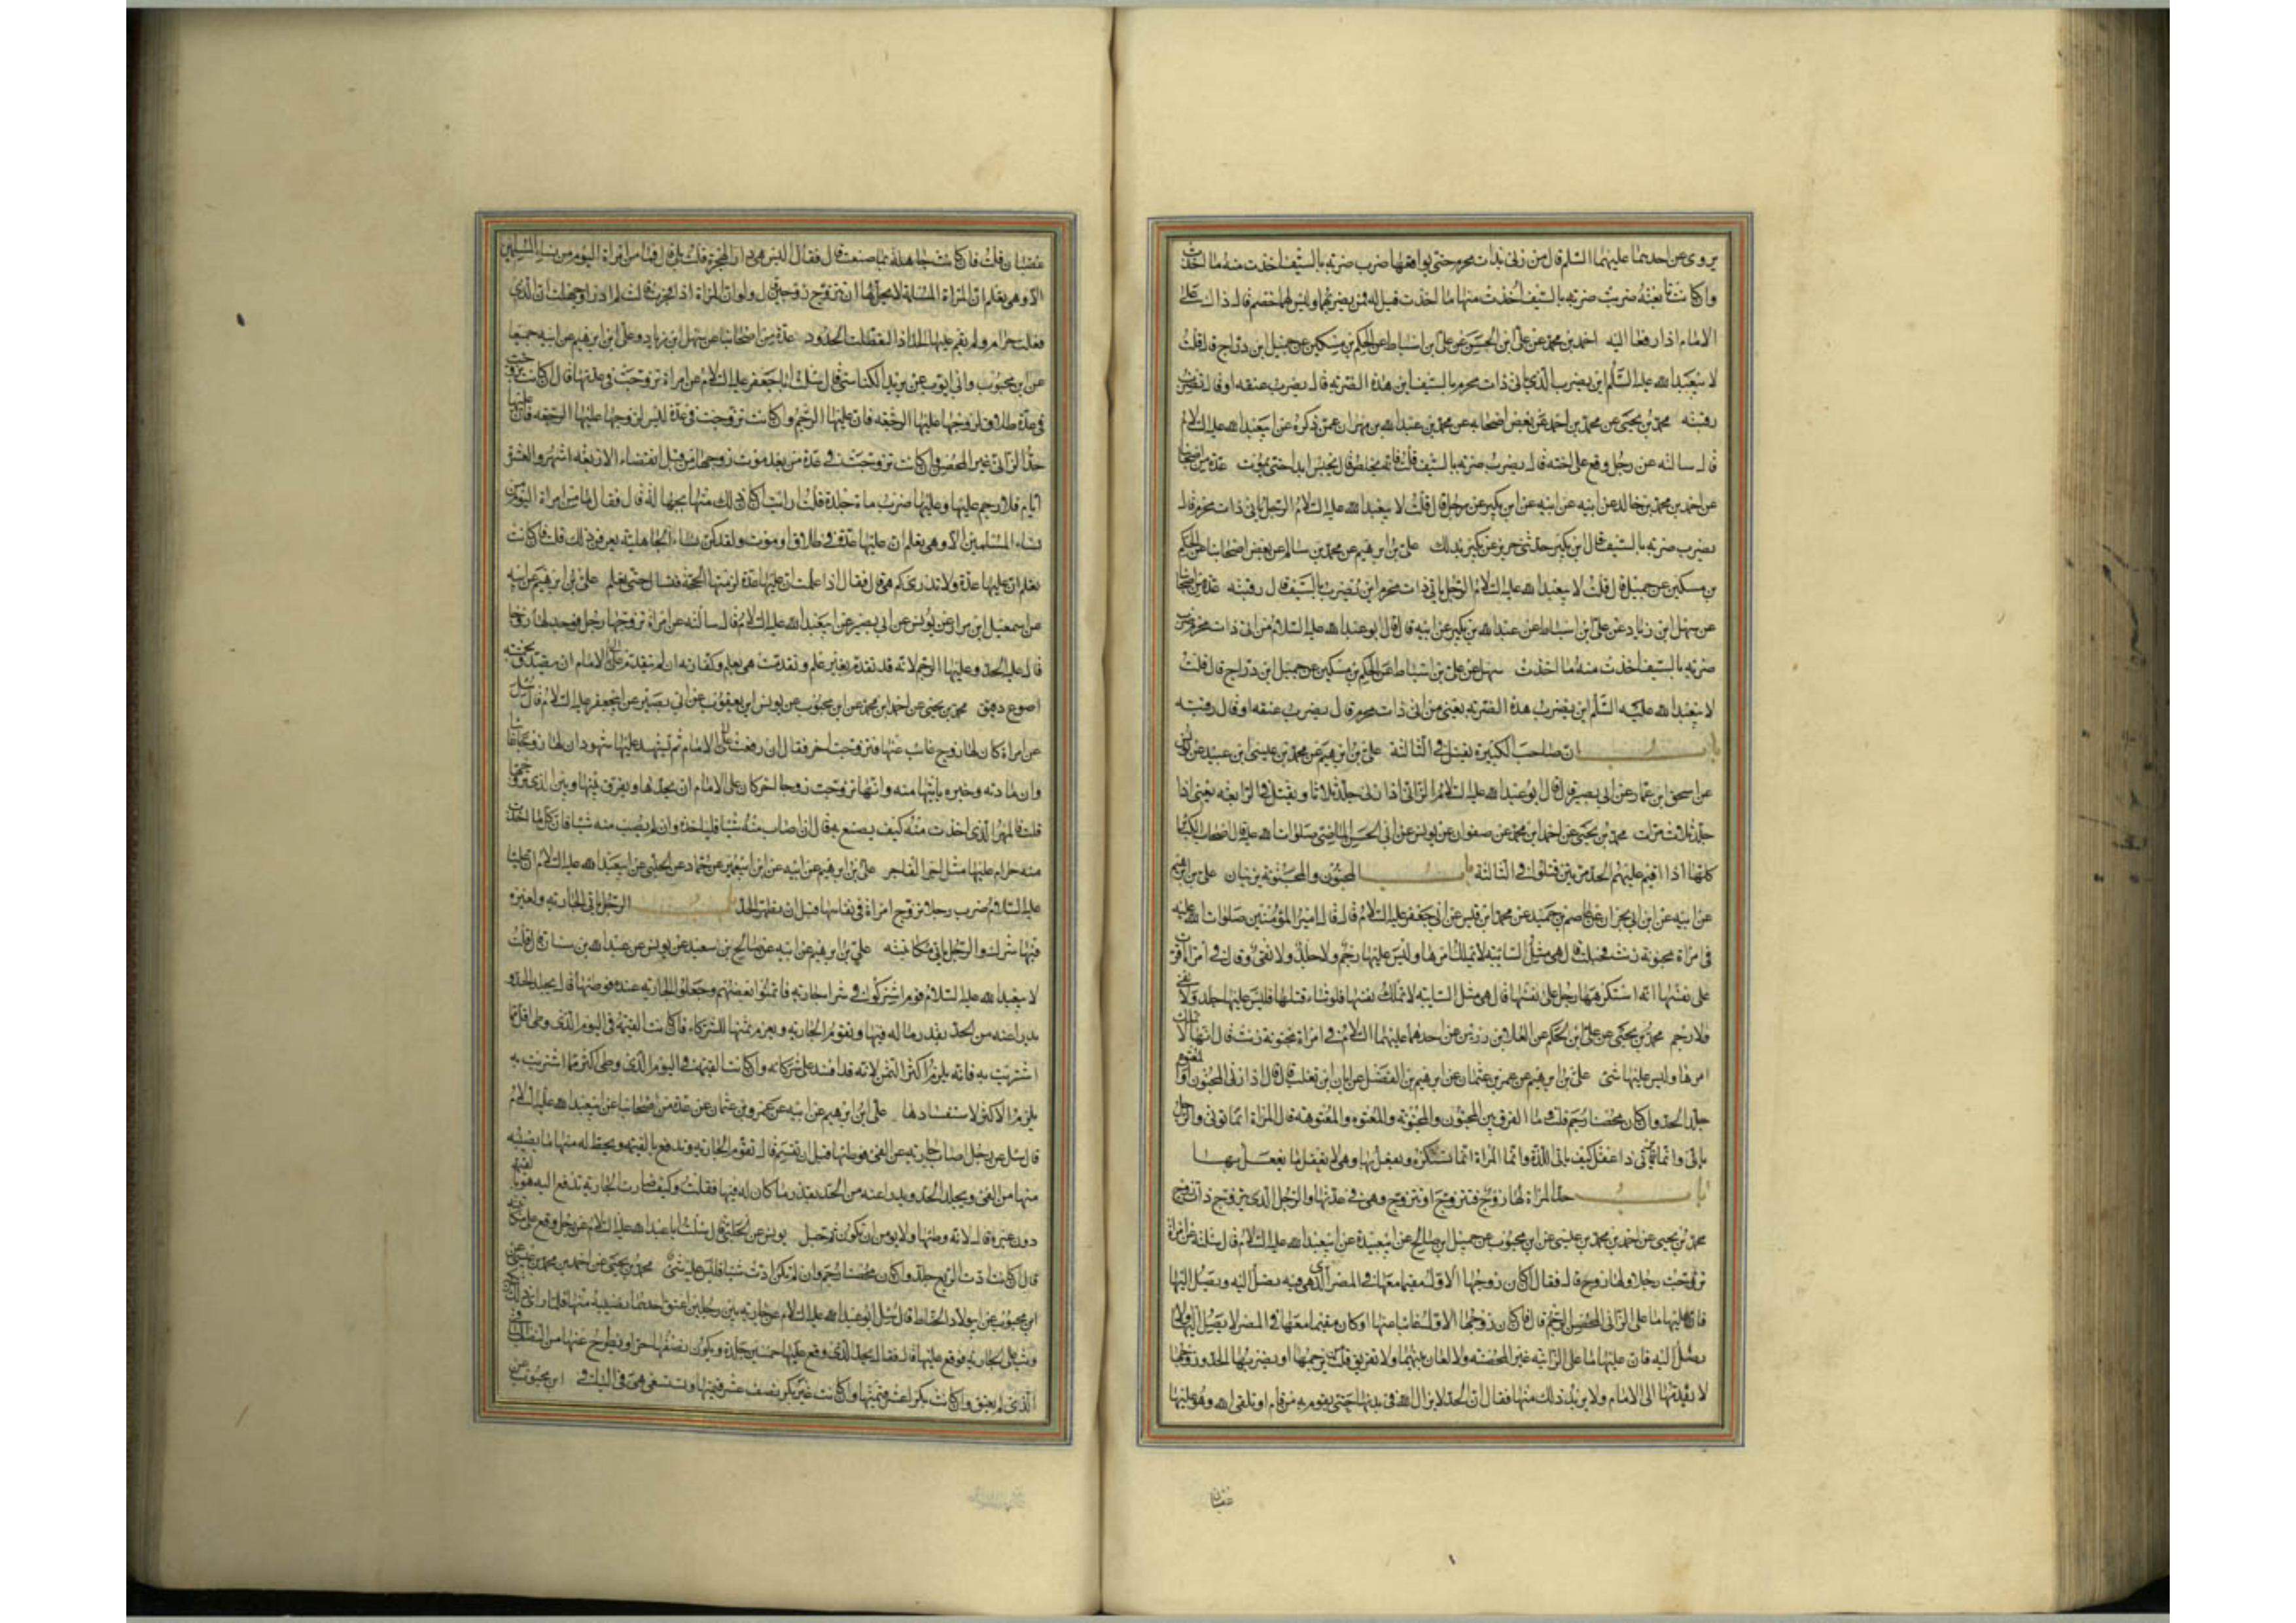 يروى عن احدهما عليهما السلم قال من زنى بذات محرم حتى يواقعها ضرب ضربة بالسيف اخذت منه ما اخذت
وان كانت تابعته ضربت ضربة بالسيف اخذت منها ما اخذت قيل له فمن يضربهما وليس لهما خصم قال ذاك على
الامام اذا رفعا اليه احمد بن محمد عن على ابن الحسين عن على بن اسباط عن الحكم بن مسكين عن جميل ابن دراج قال قلت
لابيعبد الله عليه السلم اين يضرب الذى ياتى ذات محرم بالسيف اين هذه الضربة قال يضرب عنقه او قال تضرب
رقبته محمد بن يحيى عن محمد بن احمد عن بعض اصحابه عن محمد بن عبد الله بن مهران عمن ذكره عن ابيعبد الله عليه السلام
قال سالته عن رجل وقع على اخته قال يضرب ضربة بالسيف قلت فانه يخلص قال يحبس ابدا حتى يموت عدة من اصحابنا
عن احمد بن محمد بن خالد عن ابيه عن ابن بكير عن رجل قال قلت لابيعبد الله عليه السلام الرجل ياتى ذات محرم قال
يضرب ضربة بالسيف قال ابن بكير حدثنى حريز عن بكير بذلك على بن ابرهيم عن محمد بن سالم عن بعض اصحابنا عن الحكم
بن مسكين عن جميل قال قلت لابيعبد الله عليه السلام الرجل ياتى ذات محرم اين يضرب بالسيف قال رقبته عدة من اصحابنا
عن سهل ابن زياد عن على ابن اسباط عن عبد الله بن بكير عن ابيه قال قال ابو عبد الله عليه السلام من اتى ذات محرم ضرب
ضربة بالسيف اخذت منه ما اخذت سهل عن على بن اسباط عن الحكم بن مسكين عن جميل ابن دراج قال قلت
لابيعبد الله عليه السلم اين يضرب هذه الضربة يعنى من اتى ذات محرم قال يضرب عنقه او قال رقبته
باب ان صاحب الكبيرة يقتل فى الثالثة على بن ابرهيم عن محمد بن عيسى ابن عبيد عن يونس
عن اسحق ابن عمار عن ابى بصير قال قال ابو عبد الله عليه السلام الزانى اذا زنى جلد ثلاثا ويقتل فى الرابعة يعنى اذا
جلد ثلاث مرات محمد بن يحيى عن احمد ابن محمد عن صفوان عن يونس عن ابى الحسن الماضى صلوات الله عليه قال اصحاب الكباير
كلها اذا اقيم عليهم الحد مرتين قتلوا فى الثالثة باب المجنون والمجنونة يزنيان على بن ابرهيم
عن ابيه عن ابن ابى نجران عن عاصم بن حميد عن محمد ابن قيس عن ابى جعفر عليه السلام قال قال امير المؤمنين صلوات الله عليه
فى امراة مجنونة زنت فحبلت قال هى مثل السائبة لا تملك امرها وليس عليها رجم ولا جلد ولا نفى وقال فى امراة اقرت
على نفسها انه استكرهها رجل على نفسها قال هى مثل السائبة لا تملك نفسها فلو شاء قتلها فليس عليها جلد ولا نفى
ولا رجم محمد بن يحيى عن على ابن الحكم عن العلا بن رزين عن احدهما عليهما السلام فى امراة مجنونة زنت قال انها لا تملك
امرها وليس عليها شى على بن ابرهيم عن عمرو بن عثمان عن ابرهيم بن الفضل عن ابان ابن تغلب قال قال اذا زنى المجنون او المعتوه
جلد الحد وان كان محصنا رجم قلت وما الفرق بين المجنون والمجنونة والمعتوه والمعتوهة قال المراة انما توتى والرجل
ياتى وانما ياتى اذا عقل كيف ياتى اللذة وانما المراة انما تستكره ويفعل بها وهى لا تعقل ما يفعل بها
باب حد المراة لها زوج فتزوج او تتزوج وهى فى عدتها والرجل الذى يتزوج ذات زوج
محمد بن يحيى عن احمد بن محمد بن عيسى عن ابن محبوب عن جميل ابن صالح عن ابيعبيدة عن ابيعبد الله عليه السلام قال سئلته عن امراة
تزوجت رجلا ولها زوج قال فقال ان كان زوجها الاول مقيما معها فى المصر الذى هى فيه تصل اليه ويصل اليها
فان عليها ما على الزانى المحصن الرجم قال فان كان زوجها الاول غايبا عنها او كان مقيما معها فى المصر لا يصل اليها ولا
تصل اليه فان عليها ما على الزانية غير المحصنة ولا لعان بينهما ولا تفريق قلت من يرجمها او يضربها الحد وزوجها
لا يقدمها الى الامام ولا يريد ذلك منها فقال ان الحد لا يزال لله فى بدنها حتى يقوم به من قام او تلقى الله وهو عليها
غضبان
غضبان قلت فان كانت جاهلة بما صنعت قال فقال اليس هى فى دار الهجرة قلت بلى قال فما من امراة اليوم من نساء المسلمين
الا وهى تعلم ان المراة المسلمة لا يحل لها ان تتزوج زوجين قال ولو ان المراة اذا فجرت قالت لم ادر او جهلت ان الذى
فعلت حرام ولم يقم عليها الحد اذا لتعطلت الحدود عدة من اصحابنا عن سهل ابن زياد وعلى ابن ابرهيم عن ابيه جميعا
عن ابن محبوب عن ابى ايوب عن يزيد الكناسى قال سئلت ابا جعفر عليه السلام عن امراة تزوجت فى عدتها قال ان كانت تزوجت
فى عدة طلاق لزوجها عليها الرجعة فان عليها الرجم وان كانت تزوجت فى عدة ليس لزوجها عليها الرجعة فان عليها
حد الزانى غير المحصن وان كانت تزوجت فى عدة من بعد موت زوجها من قبل انقضاء الاربعة اشهر والعشرة
ايام فلا رجم عليها وعليها ضرب ماة جلدة قلت ارايت ان كان ذلك منها بجهالة قال فقال ما من امراة اليوم من
نساء المسلمين الا وهى تعلم ان عليها عدة فى طلاق او موت ولقد كن نساء الجاهلية يعرفن ذلك قلت فان كانت
تعلم ان عليها عدة ولا تدرى كم هى قال فقال اذا علمت ان عليها عدة لزمتها الحجة فتسال حتى تعلم على بن ابرهيم عن ابيه
عن اسمعيل ابن مرار عن يونس عن ابى بصير عن ابيعبد الله عليه السلام قال سالته عن امراة تزوجها رجل فوجد لها زوجا
قال عليه الحد وعليها الرجم لانه قد تقدم بغير علم وتقدمت هى بعلم وكفارته ان لم يقدم الى الامام ان يتصدق بخمسة
اصوع دقيق محمد بن يحيى عن احمد ابن محمد عن ابن محبوب عن يونس ابن يعقوب عن ابى بصير عن ابيجعفر عليه السلام قال سئل
عن امراة كان لها زوج غائب عنها فتزوجت زوجا اخر فقال ان رفعت الى الامام ثم شهد عليها شهود ان لها زوجا غائبا
وان مادته وخبره ياتيها منه وانها تزوجت زوجا اخر كان على الامام ان يحدها ويفرق بينها وبين الذى تزوجها
قلت فالمهر الذى اخذت منه كيف يصنع به قال ان اصاب منه شيئا فلياخذه وان لم يصب منه شيئا فان كل ما اخذت
منه حرام عليها مثل اجر الفاجر على بن ابرهيم عن ابيه عن ابن ابيعمير عن حماد عن الحلبى عن ابيعبد الله عليه السلام ان عليا
عليه السلام ضرب رجلا تزوج امراة فى نفاسها قبل ان تطهر الحد باب الرجل ياتى الجارية ولغيره
فيها شرك والرجل ياتى مكاتبته على بن ابرهيم عن ابيه عن صالح بن سعيد عن يونس عن عبد الله بن سنان قال قلت
لابيعبد الله عليه السلام قوم اشتركوا فى شراء جارية فائتمنوا بعضهم وجعلوا الجارية عنده فوطئها قال يجلد الحد
ويدرا عنه من الحد بقدر ما له فيها وتقوم الجارية ويغرم ثمنها للشركاء فان كانت القيمة فى اليوم الذى وطى اقل مما
اشتريت به فانه يلزم اكثر الثمن لانه قد افسد على شركائه وان كانت القيمة فى اليوم الذى وطى اكثر مما اشتريت به
يلزم الاكثر لاستفسادها على ابن ابرهيم عن ابيه عن عمرو بن عثمان عن عدة من اصحابنا عن ابيعبد الله عليه السلام
قال سئل عن رجل اصاب جارية من الفى فوطئها قبل ان تقسم قال تقوم الجارية وتدفع بالقيمة ويحط له منها ما يصيبه
منها من الفى ويجلد الحد ويدرا عنه من الحد بقدر ما كان له فيها فقلت وكيف صارت الجارية تدفع اليه هو بالقيمة
دون غيره قال لانه وطئها ولا يومن ان يكون ثم حبل يونس عن الحلبى قال سئلت ابا عبد الله عليه السلام عن رجل وقع على مكاتبته
قال ان كانت ادت الربع جلد وان كان محصنا رجم وان لم تكن ادت شيئا فليس عليه شى محمد بن يحيى عن احمد بن محمد بن عيسى عن
ابن محبوب عن ابى ولاد الحناط قال سئل ابو عبد الله عليه السلام عن جارية بين رجلين اعتق احدهما نصيبه منها فلما راى ذلك
شريكه وثب على الجارية فوقع عليها قال فقال يجلد الذى وقع عليها خمسين جلدة ويكون نصفها حرا ويطرح عنها من النصف الباقى
الذى لم يعتق وان كانت بكرا عشر قيمتها وان كانت غير بكر نصف عشر قيمتها وتستسعى هى فى الباقى ابن محبوب عن